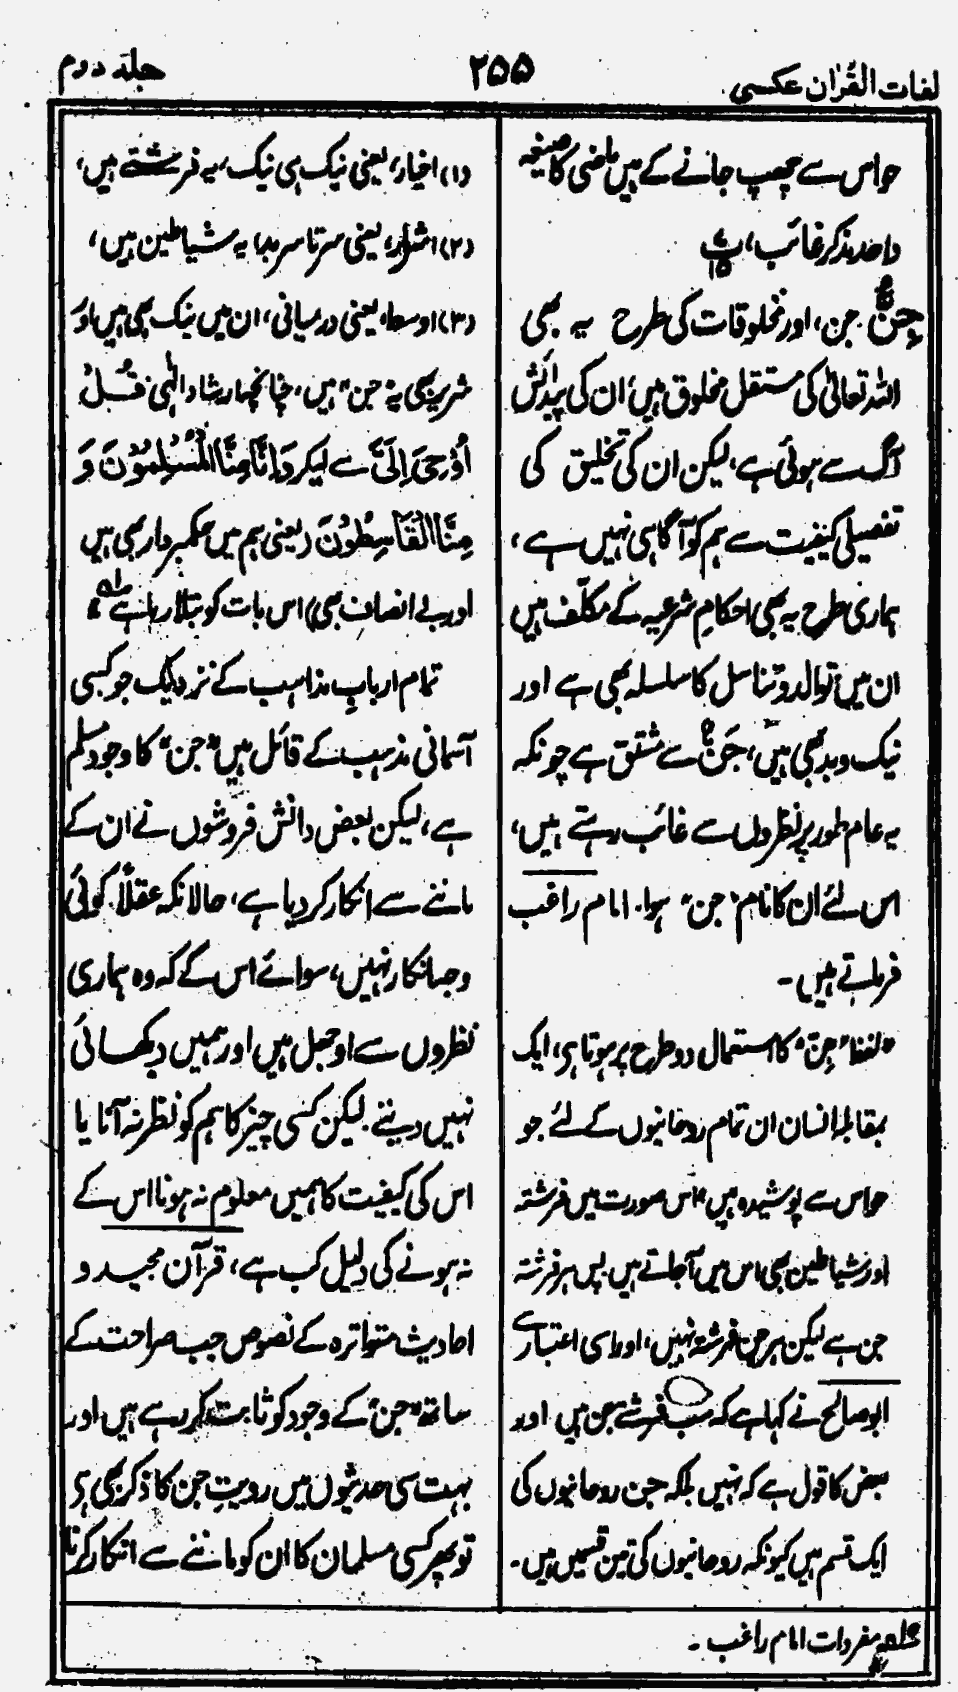 لغات القرٰان عکسی
۲۵۵
جلد دوم
حواس سے چھپ جانے کے ہیں ماضی کا صیغہ
واحد مذکر غائب، پ ۱۵
جِنٌّ۔ جن، اور مخلوقات کی طرح یہ بھی
اللہ تعالیٰ کی مستقل مخلوق ہیں، ان کی پیدائش
آگ سے ہوئی ہے، لیکن ان کی تخلیق کی
تفصیلی کیفیت سے ہم کو آگاہی نہیں ہے،
ہماری طرح یہ بھی احکامِ شرعیہ کے مکلّف ہیں
ان میں توالد و تناسل کا سلسلہ بھی ہے اور
نیک و بد بھی ہیں، جَنٌّ سے مشتق ہے چونکہ
یہ عام طور پر نظروں سے غائب رہتے ہیں،
اس لئے ان کا نام "جن" ہوا۔ امام راغب
فرماتے ہیں۔
"لفظ "جِنّ" کا استعمال دو طرح پر ہوتا ہی، ایک
بمقابلہ انسان ان تمام روحانیوں کے لئے جو
حواس سے پوشیدہ ہیں" اس صورت میں فرشتہ
اور شیاطین بھی اس میں آجاتے ہیں پس ہر فرشتہ
جن ہے لیکن ہر جن فرشتہ نہیں، اور اسی اعتبار سے
ابو صالح نے کہا ہے کہ سب فرشتے جن ہیں اور
بعض کا قول ہے کہ نہیں بلکہ جن روحانیوں کی
ایک قسم ہیں کیونکہ روحانیوں کی تین قسمیں ہیں۔
(۱) اخیار، یعنی نیک ہی نیک، یہ فرشتے ہیں،
(۲) اشرار، یعنی سرتا سر بد، یہ شیاطین ہیں،
(۳) اوسط، یعنی درمیانی، ان میں نیک بھی ہیں اور
شریر بھی یہ "جن" ہیں، چنانچہ ارشاد الٰہی قُلْ
اُوْحِیَ اِلَیَّ سے لیکر وَاِنَّا مِنَّا الْمُسْلِمُوْنَ وَ
مِنَّا الْقَاسِطُوْنَ (یعنی ہم میں حکمبردار بھی ہیں
اور بے انصاف بھی) اس بات کو بتلا رہا ہے" لہ
تمام اربابِ مذاہب کے نزدیک جو کسی
آسمانی مذہب کے قائل ہیں "جن" کا وجود مسلم
ہے، لیکن بعض دانش فروشوں نے ان کے
ماننے سے انکار کر دیا ہے، حالانکہ عقلاً کوئی
وجہ انکار نہیں، سوائے اس کے کہ وہ ہماری
نظروں سے اوجھل ہیں اور ہمیں دکھائی
نہیں دیتے۔ لیکن کسی چیز کا ہم کو نظر نہ آنا یا
اس کی کیفیت کا ہمیں معلوم نہ ہونا اس کے
نہ ہونے کی دلیل کب ہے، قرآن مجید و
احادیث متواترہ کے نصوص جب صراحت کے
ساتھ "جن" کے وجود کو ثابت کر رہے ہیں اور
بہت سی حدیثوں میں رویتِ جن کا ذکر بھی ہی
تو پھر کسی مسلمان کا ان کو ماننے سے انکار کرنا
لہ مفردات امام راغب ۔